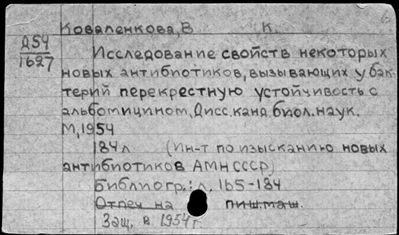 Коваленкова, В К.
Д54
1627
Исследование свойств некоторых
новых антибиотиков, вызывающих у бак-
терий перекрестную устойчивость с
альбомицином, Дисс. канд биол. наук.
М, 1954
184 л (Ин-т по изысканию новых
антибиотиков АМН СССР)
Библиогр.: л. 165-184
Отпеч на пиш.маш.
Защ. в 1954 г.